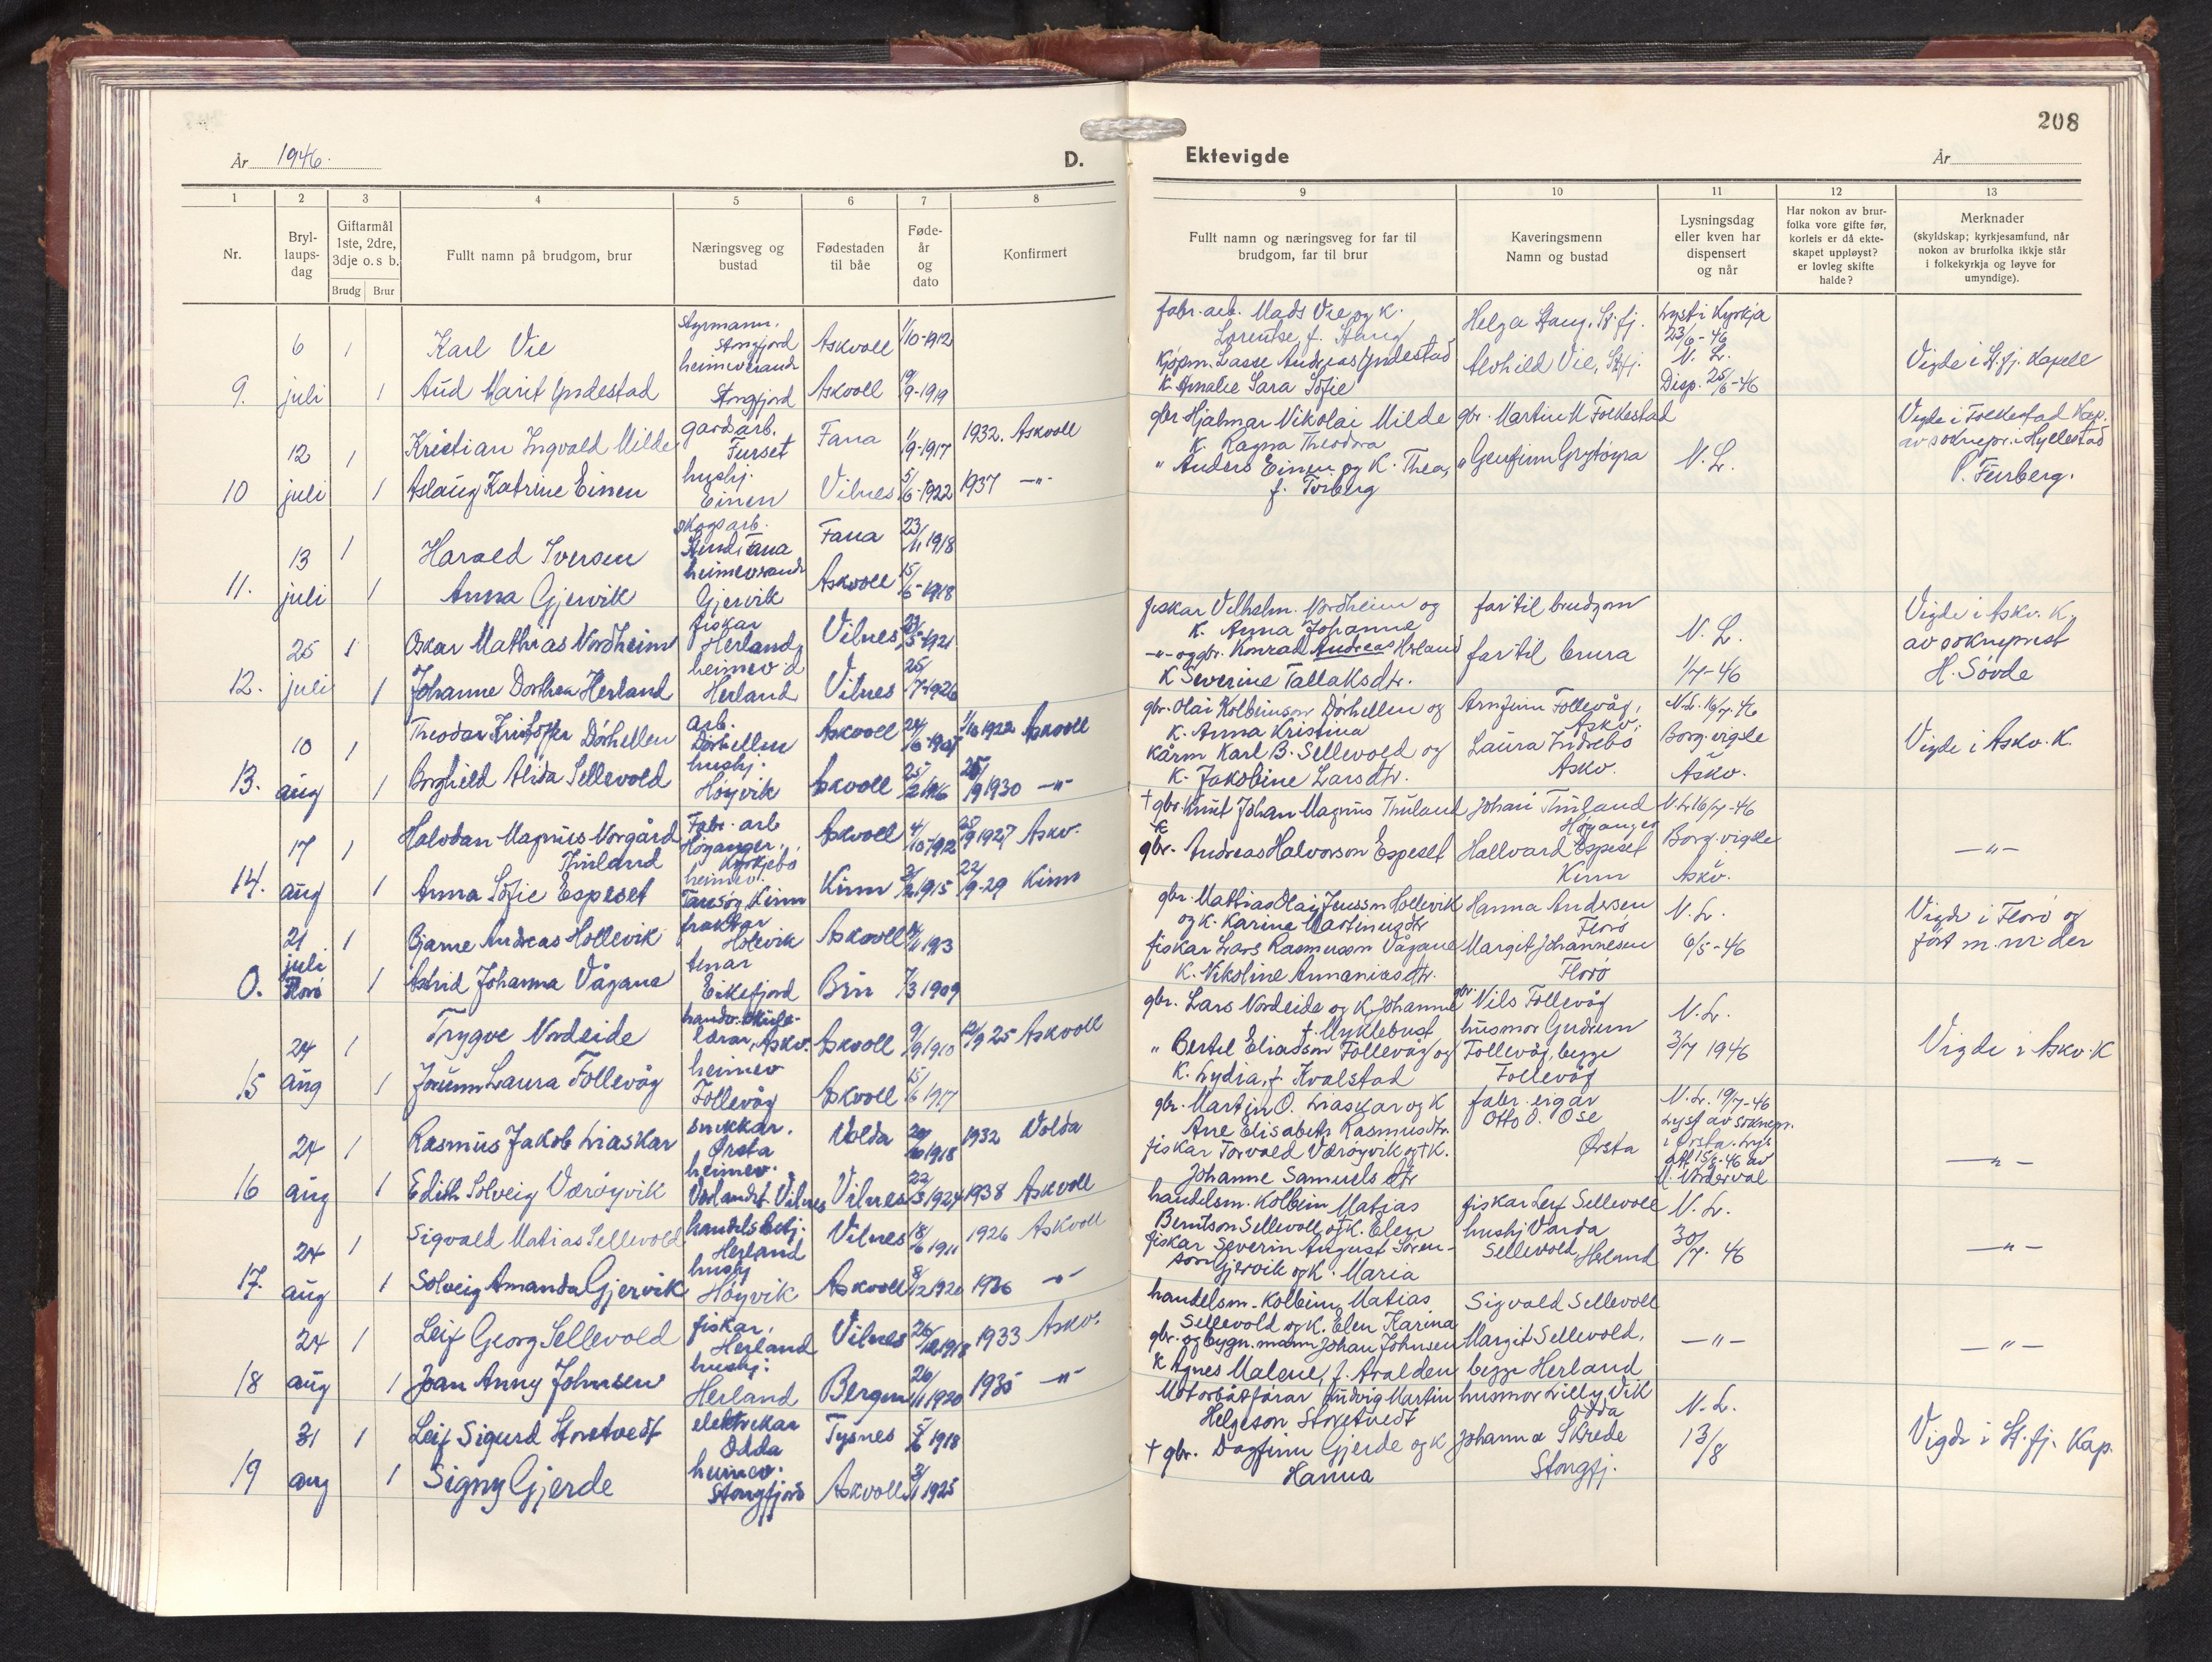 208
År 1946.
D.
Ektevigde
År
1 2 3 4 5 6 7 8
9 10 11 12 13
Nr.
Bryl-
laups-
dag
Giftarmål
1ste, 2dre,
3dje o. s b.
Brudg Brur
Fullt namn på brudgom, brur
Næringsveg og
bustad
Fødestaden
til båe
Føde-
år
og
dato
Konfirmert
Fullt namn og næringsveg for far til
brudgom, far til brur
Kaveringsmenn
Namn og bustad
Lysningsdag
eller kven har
dispensert
og når
Har nokon av brur-
folka vore gifte før,
korleis er då ekte-
skapet uppløyst?
er lovleg skifte
halde?
Merknader
(skyldskap; kyrkjesamfund, når
nokon av brurfolka ikkje står
i folkekyrkja og løyve for
umyndige).
6 1 Karl Vie
Styrmann.
Stongfjord
Askvoll 1/10-1912
9. juli 1 Aud Marit Yndestad
heimeverande
Stongfjord
Askvoll 19/9-1919
fabr. arb. Mads Vie og K.
Lorentse f. Stang
Kjøpm. Lasse Andreas Yndestad
K. Amalie Sara Sofie
Helga Stang, St.fj.
Alvhild Vie, St.fj.
Lyst i Kyrkja
23/6-46
N. L.
Disp. 25/6-46
Vigde i St.fj. Kapell
12 1 Kristian Ingvald Milde
gardarb.
Furset
Fana 1/9-1917 1932. Askvoll
10 juli 1 Aslaug Katrine Einen
hushj.
Einen
Vilnes 5/6-1922 1937 -"-
gbr Hjalmar Nikolai Milde
K. Ragna Theodora
" Anders Einen og K. Thea,
f. Torberg
gbr. Martin M Folkestad
" Genfinn Grytøyra
N. L.
Vigde i Folkestad Kap.
av soknepr. i Hyllestad
P. Feirberg.
13 1 Harald Iversen
skogsarb.
Fana
Fana 23/11 1918
11. juli 1 Anna Gjervik
heimeverande
Gjervik
Askvoll 15/6-1918
25 1 Oskar Mathias Nordheim
fiskar
Herland
Vilnes 23/5-1921
12. juli 1 Johanne Dorthea Herland
heimev d
Herland
Vilnes 25/7-1926
fiskar Vilhelm Nordheim og
K. Anna Johanne
-"- og gbr. Konrad Andreas Herland
K Severine Tallaksdtr.
far til brudgom
far til brura
N. L.
1/7-46
Vigde i Askv. K.
av sokneprest
H. Søvde
10 1 Theodor Kristoffer Dørhellen
arb.
Dørhellen
Askvoll 1/10 1922 Askvoll
13. aug 1 Borghild Alida Sellevold
hushj.
Høyvik
Askvoll 1930 -"-
gbr. Olai Kolbeinson Dørhellen og
K. Anna Kristina
kårm Karl B. Sellevold og
K. Jakobine Larsdtr.
Arnfinn Follevåg,
Askv.
Laura Indrebø
Askv.
N.L. 16/7-46
Borg. vigsle
Askv.
Vigde i Askv. K.
17 1 Halvdan Magnus Norgård
Thuland
Fabr. arb
Høyanger,
Kyrkjebø
Askvoll 4/10-1912 1927 Askv.
14. aug 1 Anna Sofie Espeset
heimev.
Tansøy, Kinn
Kinn 2/2 1915 22/9-29 Kinn
† gbr. Knut Johan Magnus Thuland
K
gbr. Andreas Halvorson Espeset
Johan Thuland
Høyanger
Hallvard Espeset
Kinn
N.L. 16/7-46
Borg. vigsle
Askv.
-"-
21 1 Bjarne Andreas Hollevik
fraktar
Hollevik
Askvoll
juli
O. Florø 1 Astrid Johanna Vågane
tenar
Eikefjord
Bru 7/3 1909
gbr. Mattias Olai Jensson Hollevik
og K. Karine Martinusdtr
fiskar Lars Rasmusson Vågane
K. Nikoline Annaniasdtr.
Hanna Andersen
Florø
Margit Johannesen
Florø
N. L.
6/5-46
Vigde i Florø og
ført m. nr. der
24 1 Trygve Nordeide
handv. skule-
lærar, Askv.
Askvoll 9/9 1910 12/9 25 Askvoll
15 aug 1 Jorunn Laura Follevåg
heimev
Follevåg
Askvoll 15/6 1917
gbr. Lars Nordeide og K. Johanne
f. Myklebust
" Bertel Eliasson Follevåg og
K. Lydia, f. Kvalstad
gbr. Nils Follevåg
husmor Gudrun
Follevåg, begge
Follevåg
N. L.
3/7 1946
Vigde i Askv. K
24 1 Rasmus Jakob Liaskar
snikkar.
Ørsta
Volda 1918 1932 Volda
16 aug 1 Edith Solveig Værøyvik
heimev.
Værlandet Vilnes
Vilnes 22/3 1924 1938 Askvoll
gbr. Martin O. Liaskar og K
Ane Elisabeth Rasmusdtr.
fiskar Torvald Værøyvik og K.
Johanne Samuelsdtr
fabr. eigar
Otto O. Ose
Ørsta
N. L. 19/7-46
Lyst av soknepr.
i Ørsta. Lys.
att. 15/8-46 av
M. Norderval
-"-
24 1 Sigvald Matias Sellevold
handelsbetj.
Herland
Vilnes 18/6 1911 1926 Askvoll
17. aug 1 Solveig Amanda Gjervik
hushj
Høyvik
Askvoll 8/12 1920 1936 -"-
handelsm. Kolbein Matias
Berntson Sellevoll og K. Elen
fiskar Severin August Søren-
son Gjervik og K. Maria
fiskar Leif Sellevoll
hushj Varda
Sellevold, Herland
N. L.
30/7-46
-"-
24 1 Leif Georg Sellevold
fiskar,
Herland
Vilnes 1918 1933 Askv.
18 aug 1 Joan Anny Johnsen
hushj.
Herland
Bergen 26/11 1920 1935 -"-
handelsm. Kolbein Matias
Sellevold og K. Elen Karina
gbr. og bygn. mann Johan Johnsen
K Agnes Malene, f. Aralden
Sigvald Sellevoll
Margit Sellevold,
begge Herland
-"-
-"-
31 1 Leif Sigurd Storetvedt
elektrikar
Odda
Tysnes 5/6 1918
19 aug 1 Signy Gjerde
heimev.
Stongfjord
Askvoll 3/1 1925
Motorbåtførar Ludvig Martin
Helgeson Storetvedt
† gbr. Dagfinn Gjerde og K
Hanna
husmor Lilly Vik
Odda
Johanna Skrede
Stongfj.
N. L.
13/8
Vigde i St.fj. Kap.